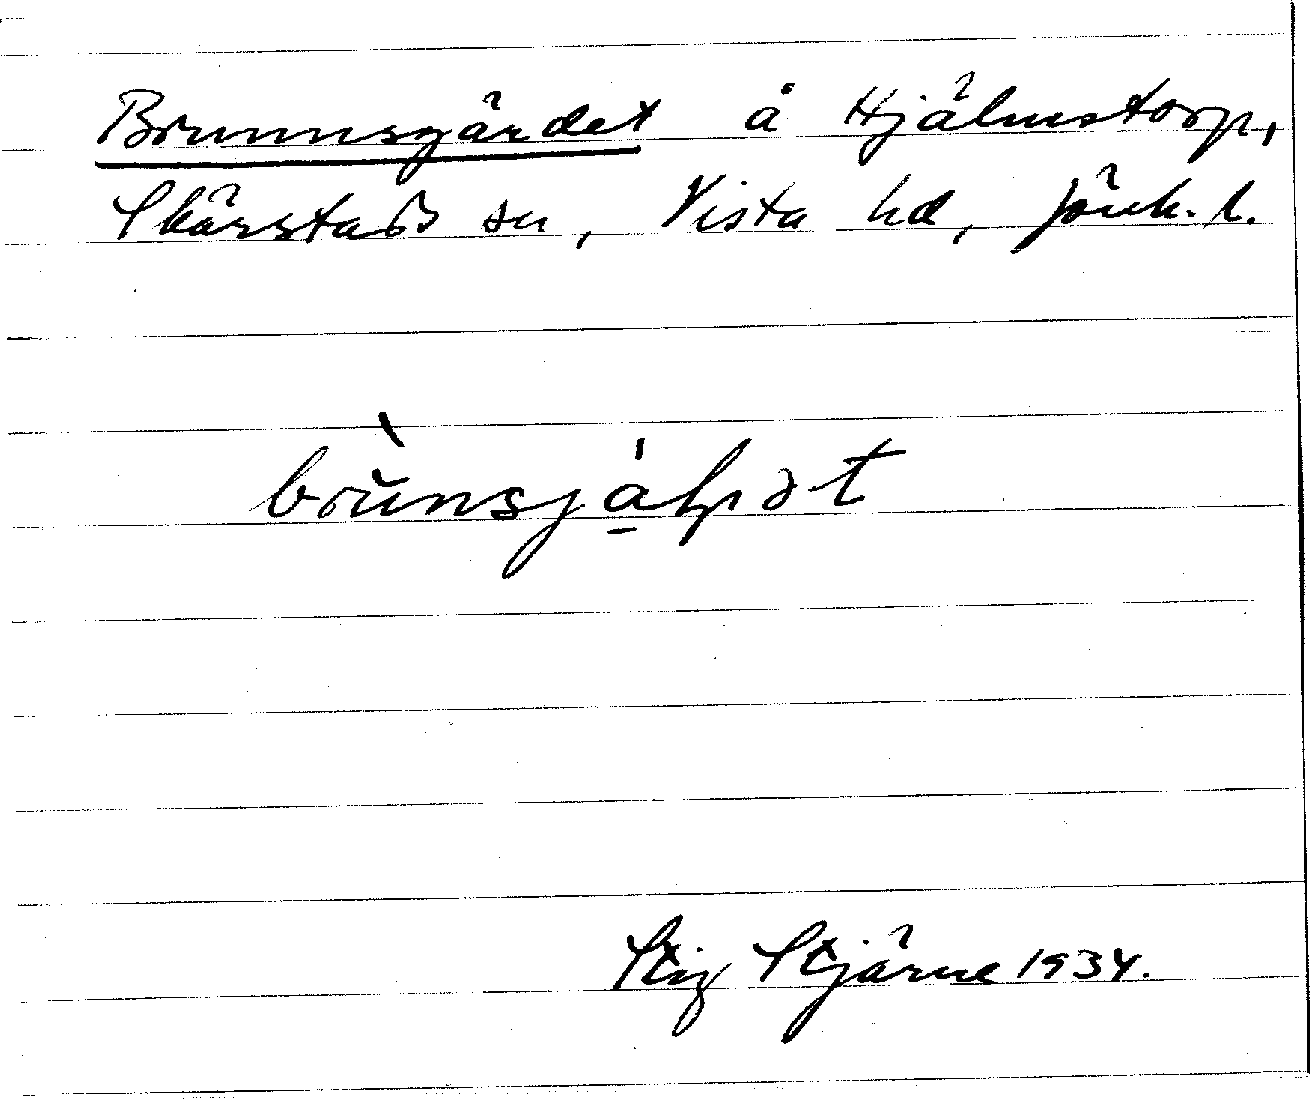 Brunnsgärdet å Hjälmstorp,
Skärstads sn, Vista hd, Jönk. l.
Stig Stjärne 1934.